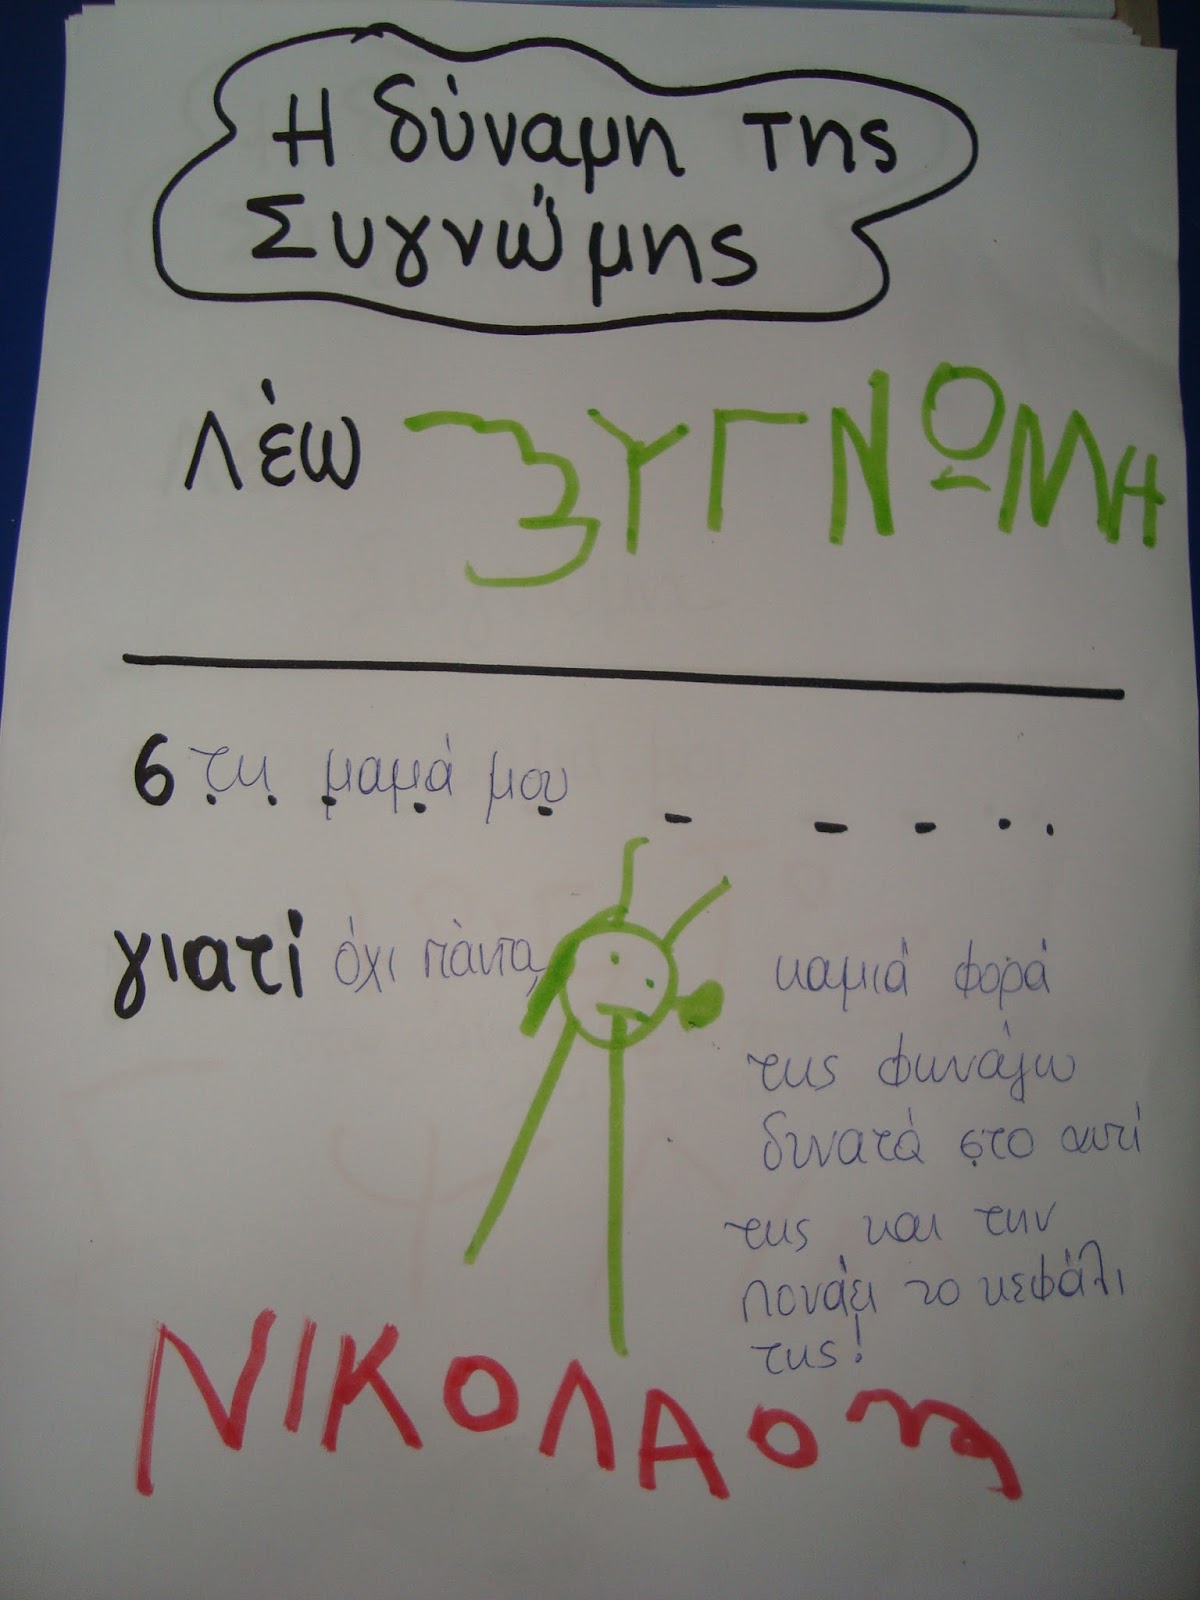 Η δύναμη της
Συγνώμης
Λέω ΣΥΓΝΩΜΗ
σ τη μαμά μου
γιατί όχι πάντα καμιά φορά
της φωνάζω
δυνατά στο αυτί
της και την
πονάει το κεφάλι
της!
ΝΙΚΟΛΑΟΣ